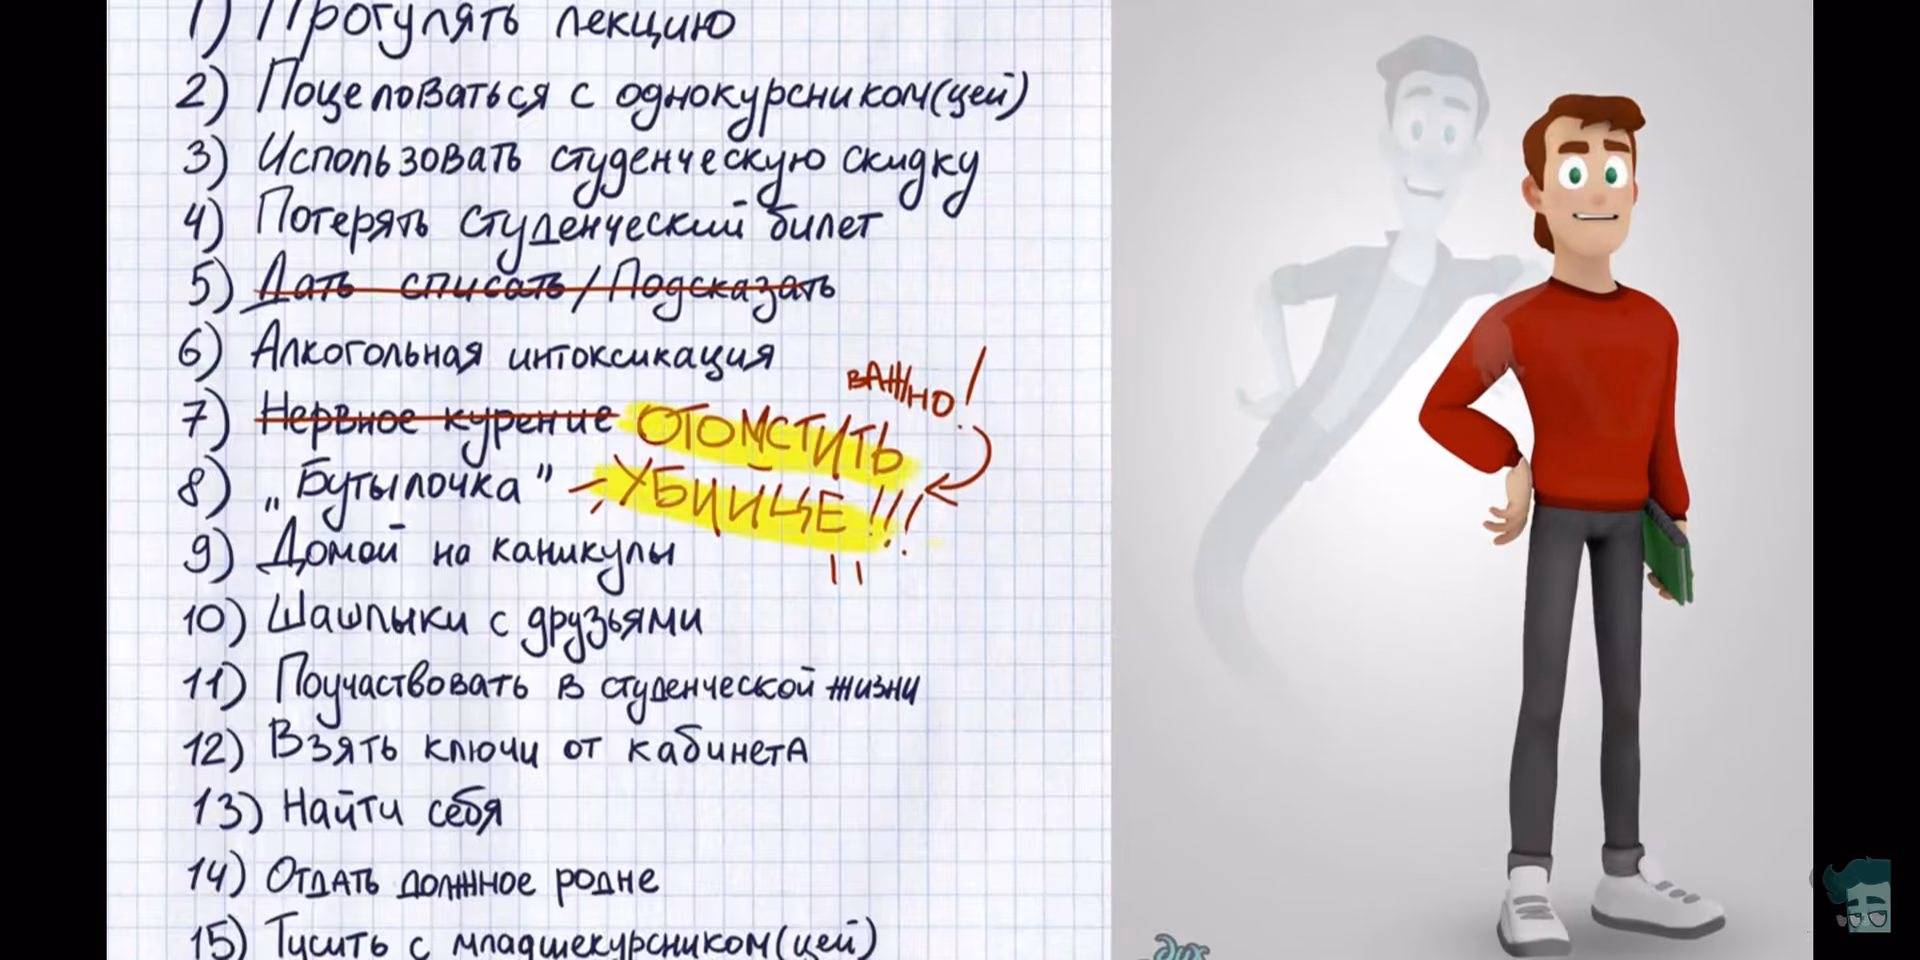 1) Прогулять лекцию
2) Поцеловаться с однокурсником(цей)
3) Использовать студенческую скидку
4) Потерять студенческий билет
5) Дать списать / Подсказать
6) Алкогольная интоксикация
ВАЖНО!
7) Нервное курение ОТОМСТИТЬ
8) „Бутылочка" УБИЙЦЕ!!!
9) Домой на каникулы
10) Шашлыки с друзьями
11) Поучаствовать в студенческой жизни
12) Взять ключи от кабинета
13) Найти себя
14) Отдать должное родне
15) Тусить с младшекурсником(цей)
Дух